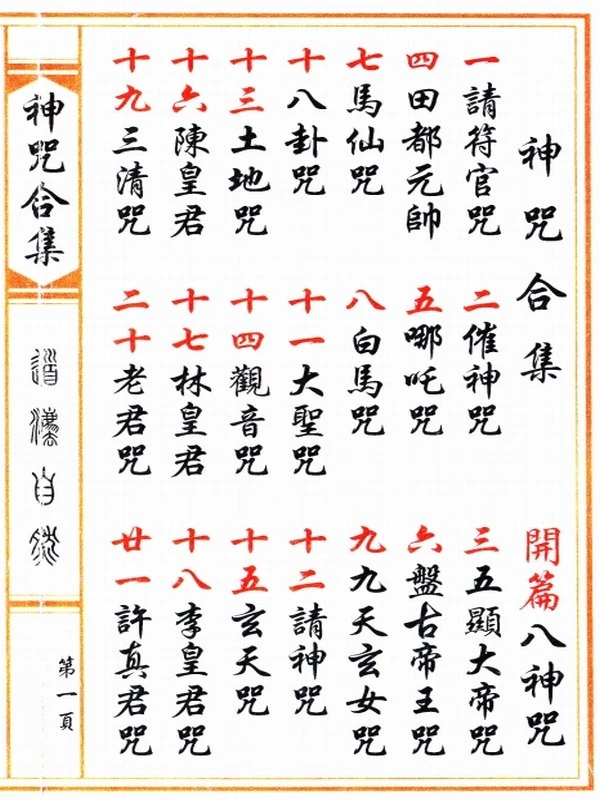 神咒合集 開篇八神咒
一請符官咒 二催神咒 三五顯大帝咒
四田都元帥 五哪吒咒 六盤古帝王咒
七馬仙咒 八白馬咒 九九天玄女咒
十八卦咒 十一大聖咒 十二請神咒
十三土地咒 十四觀音咒 十五玄天咒
十六陳皇君 十七林皇君 十八李皇君咒
十九三清咒 二十老君咒 廿一許真君咒
神咒合集
道灋自然
第一頁